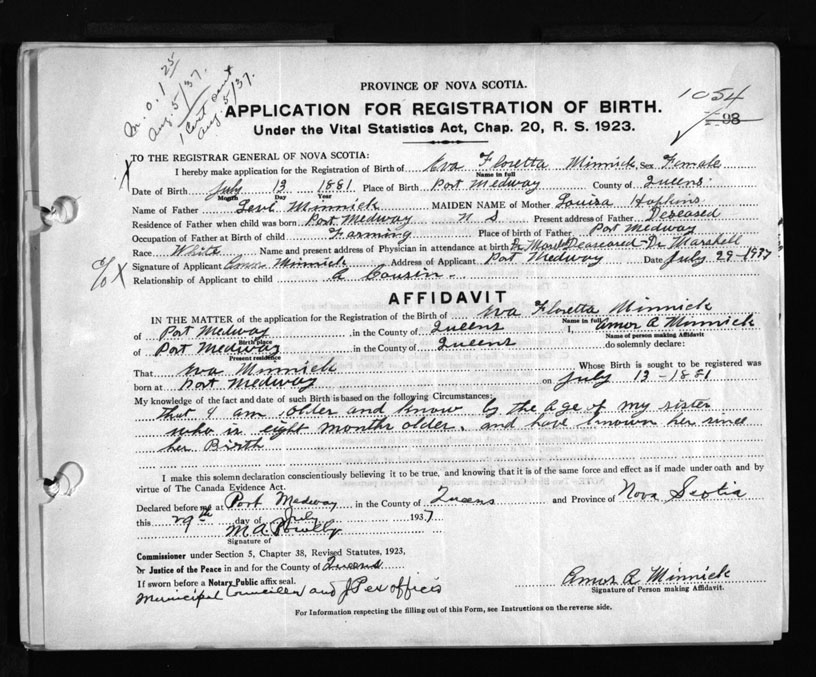 M.O. 1 25
Aug. 5/37.
1 Cert sent
Aug. 5/37.
PROVINCE OF NOVA SCOTIA.
APPLICATION FOR REGISTRATION OF BIRTH.
Under the Vital Statistics Act, Chap. 20, R. S. 1923.
1054
X TO THE REGISTRAR GENERAL OF NOVA SCOTIA:
I hereby make application for the Registration of Birth of Eva Floretta Minnick Sex Female
Name in full
Date of Birth July 13 1881 Place of Birth Port Medway County of Queens
Month Day Year
Name of Father Levi Minnick MAIDEN NAME of Mother Louisa Hopkins
Residence of Father when child was born Port Medway N S Present address of Father Deseased
Occupation of Father at Birth of child Farming Place of birth of Father Port Medway
Race White Name and present address of Physician in attendance at birth Deaseared - Dr Marshell
c/o X Signature of Applicant Amos Minnick Address of Applicant Port Medway Date July 29-1937
Relationship of Applicant to child A Cousin.
AFFIDAVIT
IN THE MATTER of the application for the Registration of the Birth of Eva Floretta Minnick
Name in full
of Port Medway in the County of Queens I, Amos A Minnick
Birth place Name of person making Affidavit
of Port Medway in the County of Queens do solemnly declare:
Present residence
That Eva Minnick Whose Birth is sought to be registered was
born at Port Medway on July 13-1881
My knowledge of the fact and date of such Birth is based on the following Circumstances:
that I am older and know by the age of my sister
who is eight months older. and have known her since
her Birth
I make this solemn declaration conscientiously believing it to be true, and knowing that it is of the same force and effect as if made under oath and by
virtue of The Canada Evidence Act.
Declared before me at Port Medway in the County of Queens and Province of Nova Scotia
this 29th day of July 1937
M.A.
Signature of
Commissioner under Section 5, Chapter 38, Revised Statutes, 1923,
or Justice of the Peace in and for the County of Queens
If sworn before a Notary Public affix seal.
Municipal Councillor and J P ex officio
Amos A Minnick
Signature of Person making Affidavit.
For Information respecting the filling out of this Form, see Instructions on the reverse side.